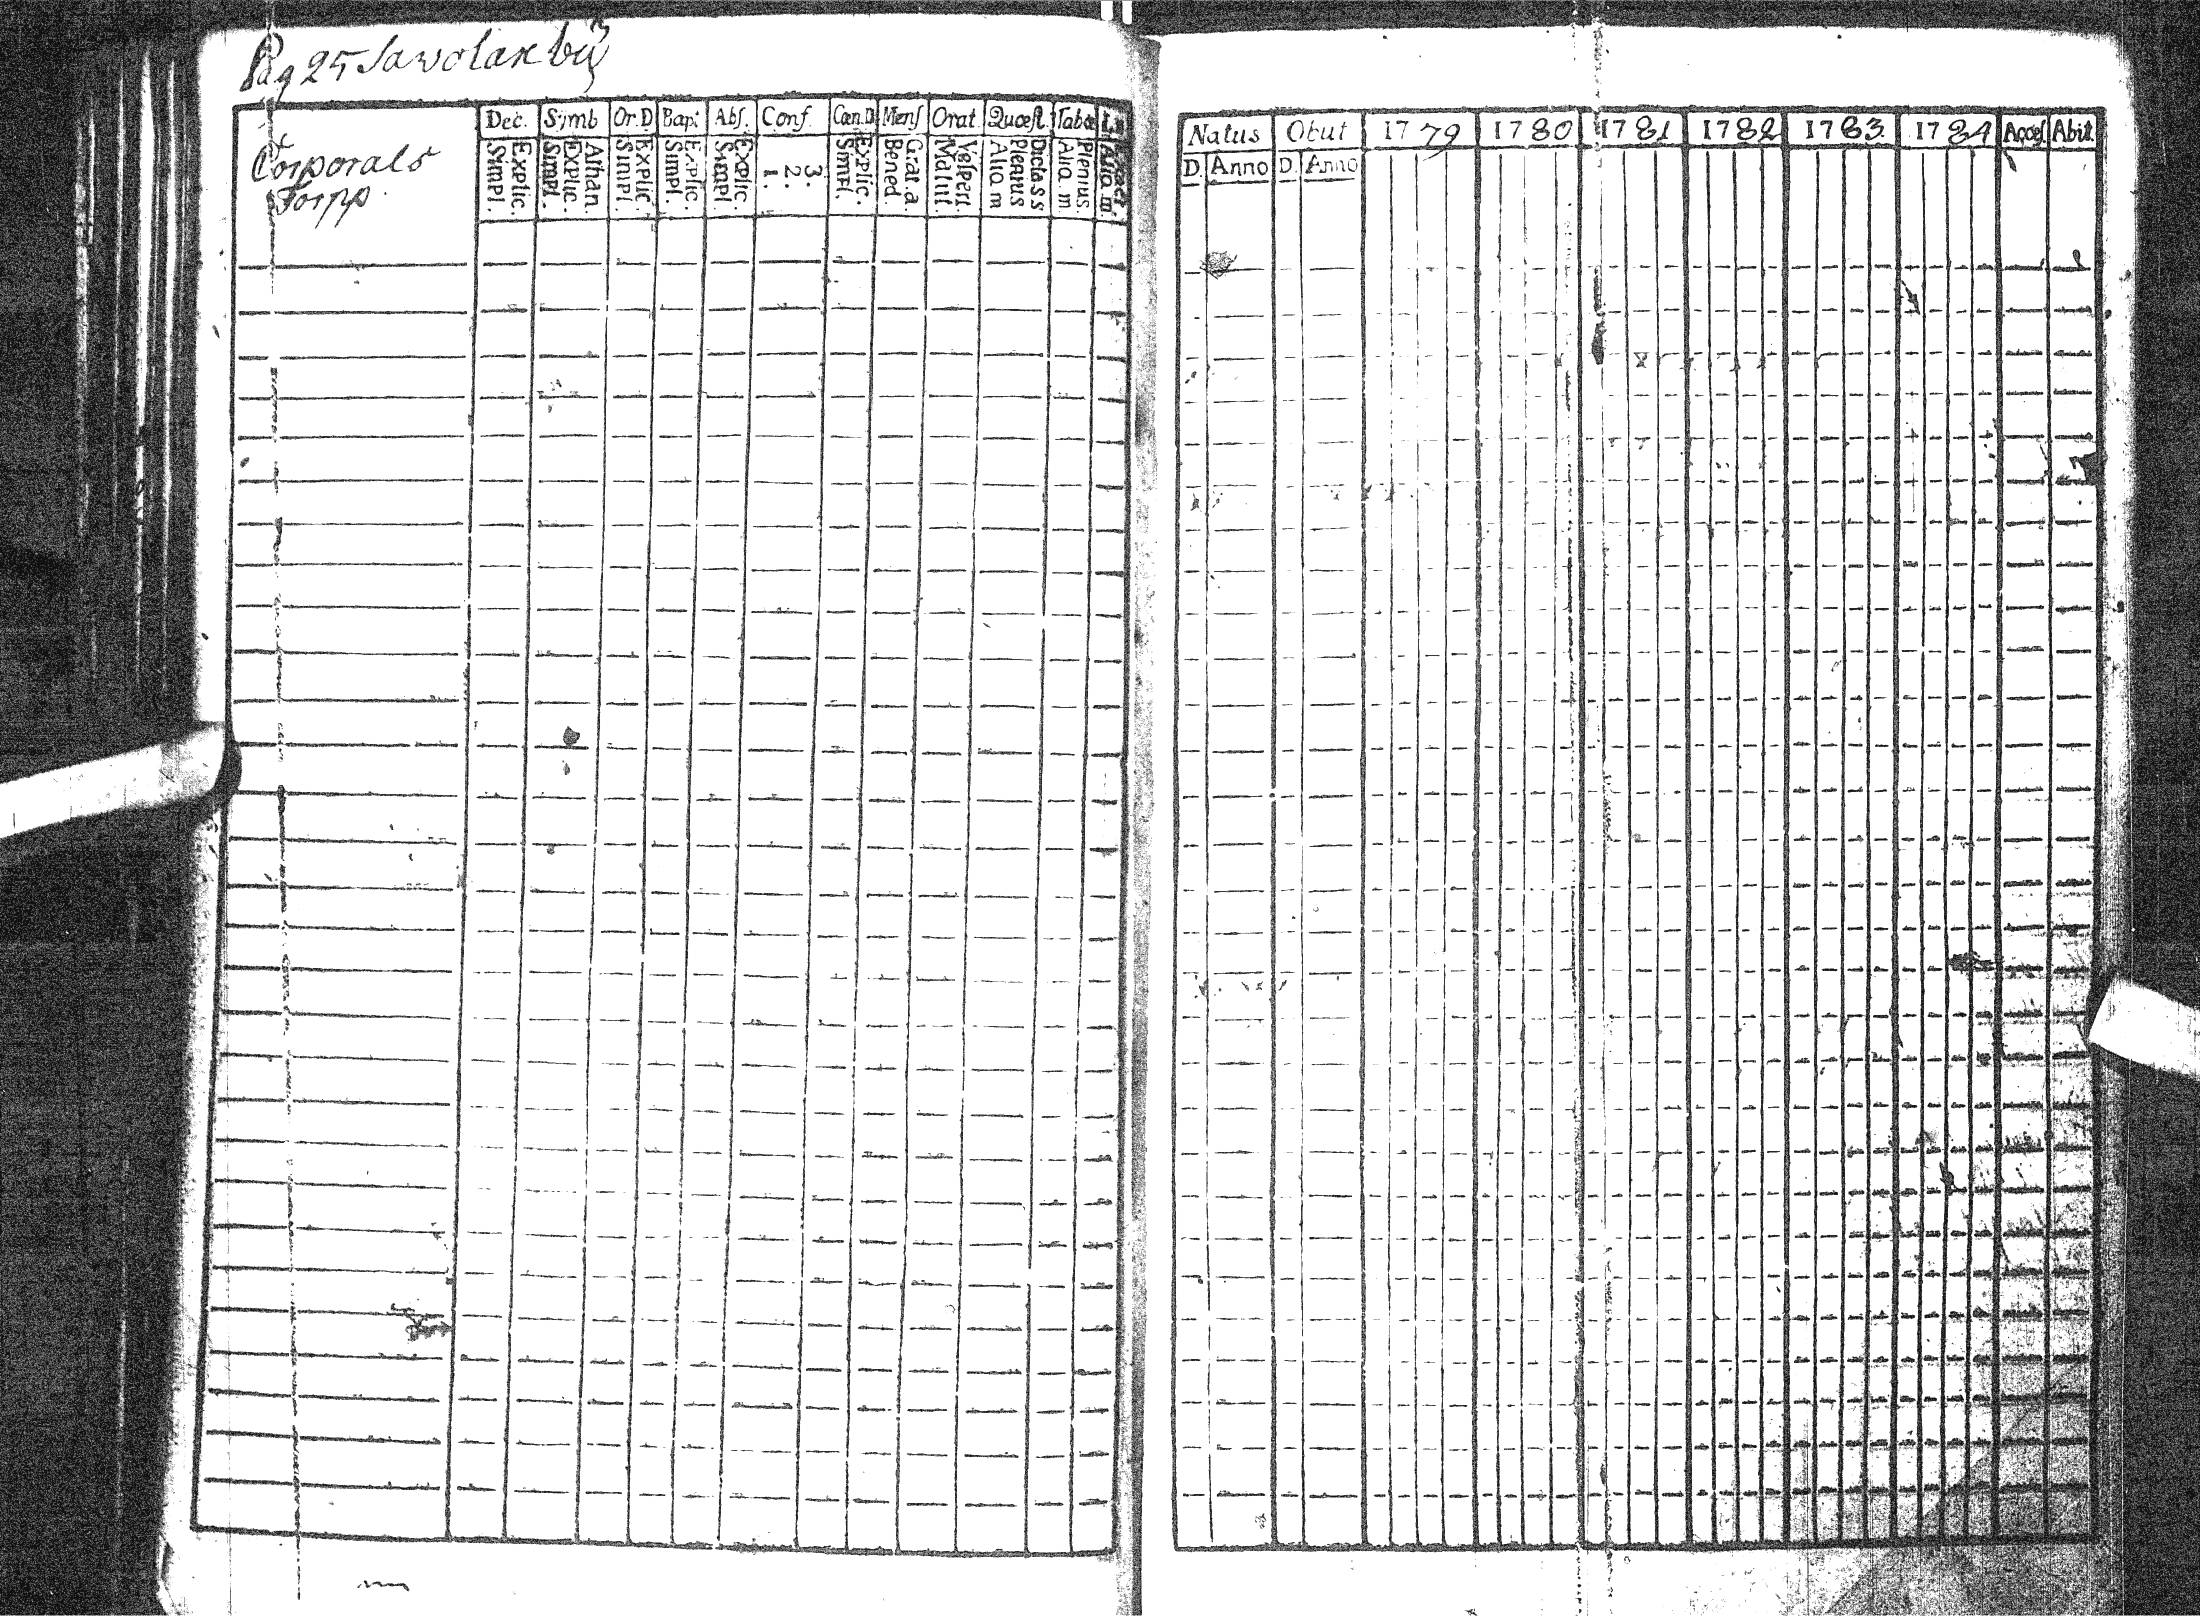 Pag 25 Sawolax by
Corporals
Torpp.
Dec. Symb Or.D Bapt Abs. Conf. Cœn.D Mens Orat Quæst. Tabæ
Explic. Simpl. Athan. Explic. Simpl. Explic. Simpl. Explic. Simpl. Explic. Simpl. 3. 2. 1. Explic. Simpl. Grat.a. Bened. Vespert. Matut. Dicta s s Plenius Aliq m Plenius. Aliq. m. Aliq. m.
Natus Obiit 1779 1780 1781 1782 1783 1784 Acces Abiit
D. Anno D. Anno